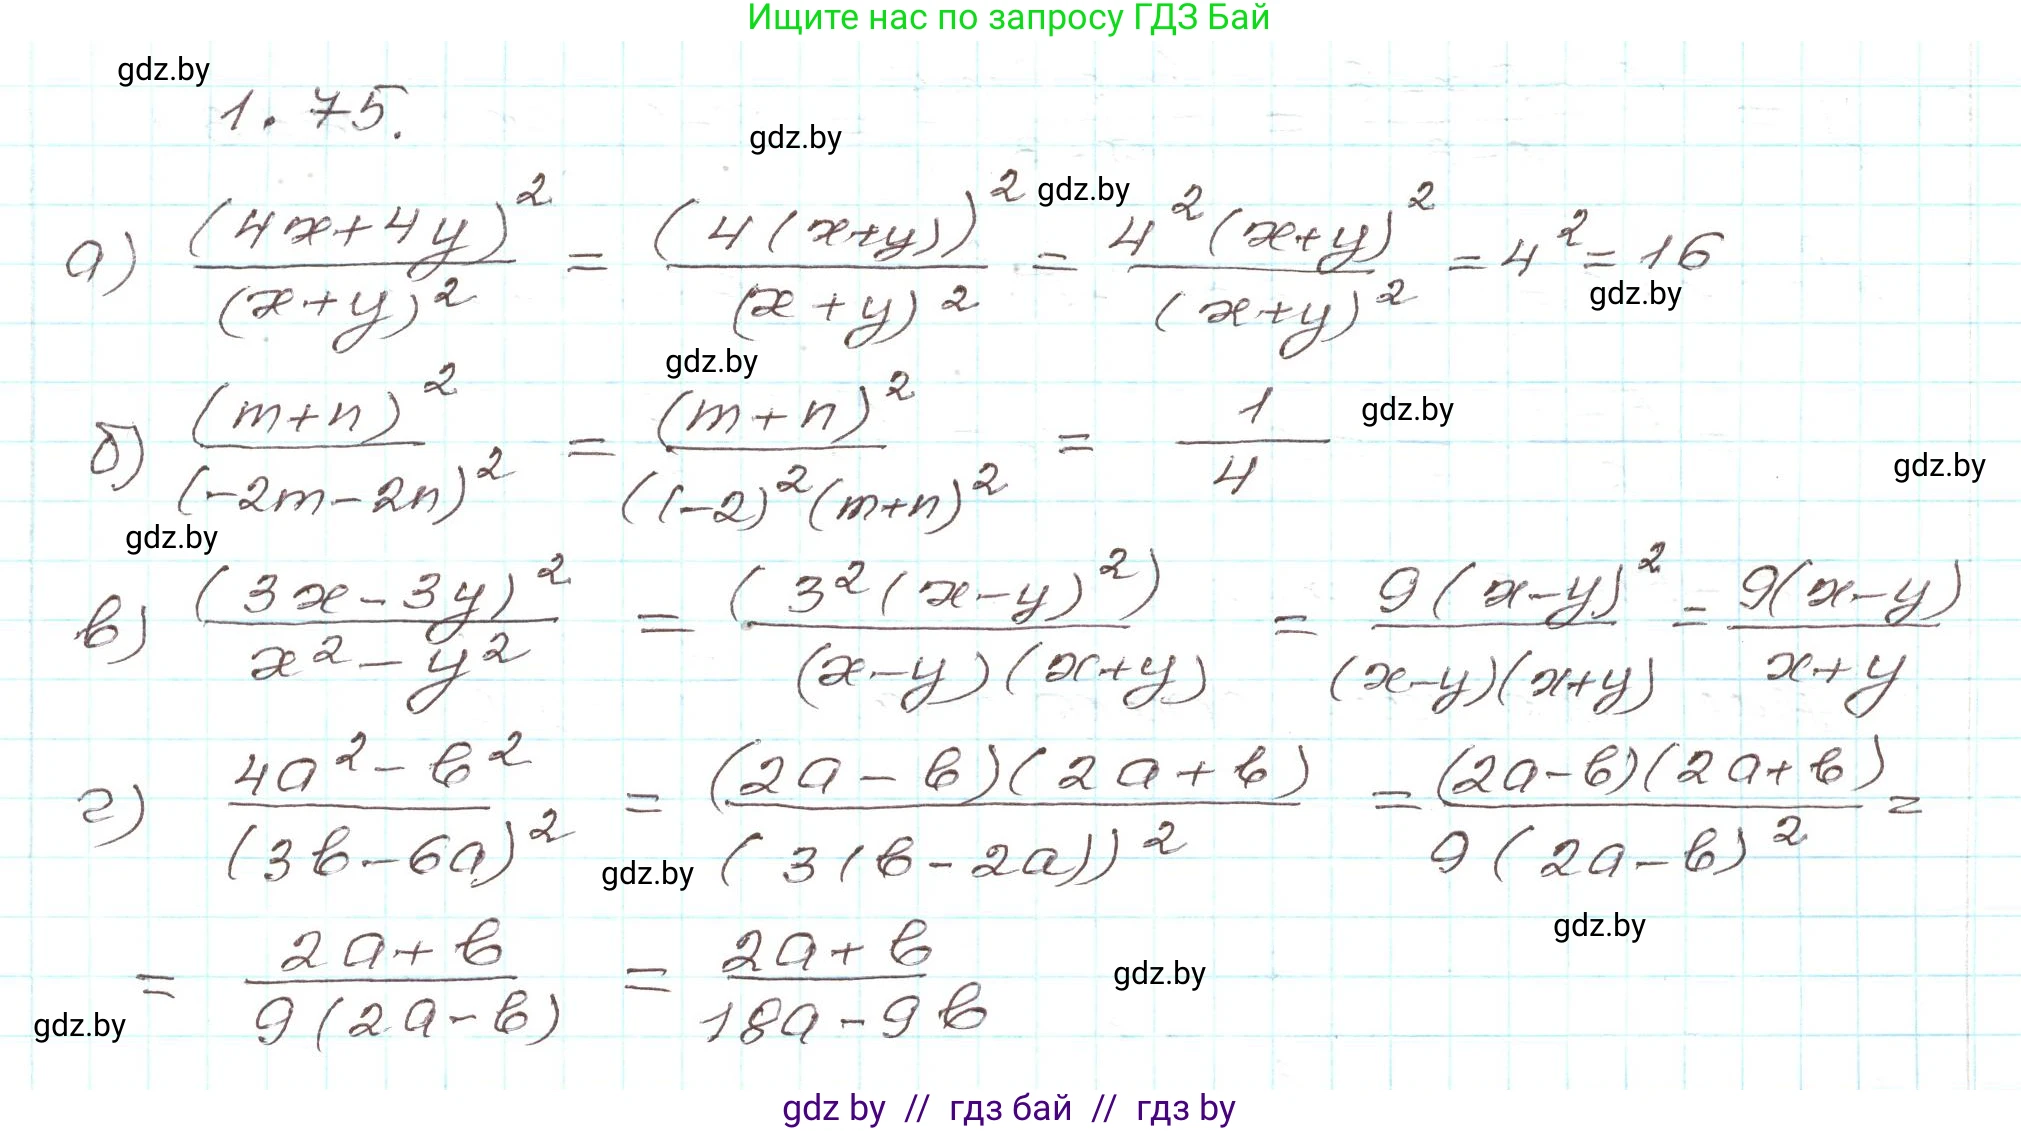 Ищите нас по запросу ГДЗ Бай
gdz.by
1.75.
gdz.by
gdz.by
а) (4x+4y)²/(x+y)² = (4(x+y))²/(x+y)² = 4²(x+y)²/(x+y)² = 4² = 16
gdz.by
gdz.by
б) (m+n)²/(-2m-2n)² = (m+n)²/((-2)²(m+n)² = 1/4
gdz.by
gdz.by
gdz.by
в) (3x-3y)²/x²-y² = (3²(x-y)²)/(x-y)(x+y) = 9(x-y)²/(x-y)(x+y) = 9(x-y)/x+y
г) 4a²-b²/(3b-6a)² = (2a-b)(2a+b)/(3(b-2a))² = (2a-b)(2a+b)/9(2a-b)² =
gdz.by
gdz.by
= 2a+b/9(2a-b) = 2a+b/18a-9b
gdz.by
gdz.by
gdz by // гдз бай // гдз by